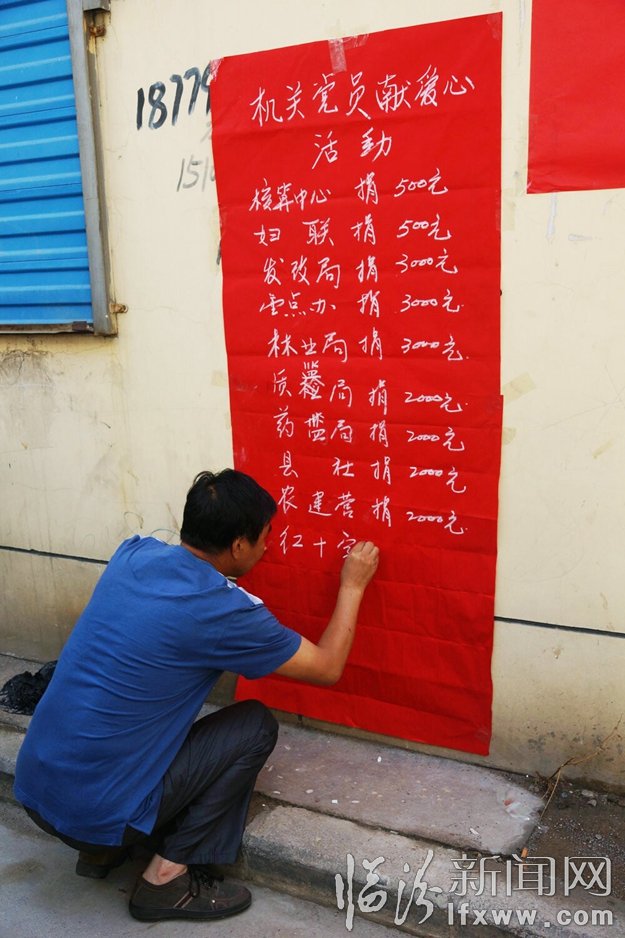 1877
151
机关党员献爱心
活动
核算中心 捐 500元
妇 联 捐 500元
发改局 捐 3000元
捐 3000元
林业局 捐 3000元
质 局 捐 2000元
药 局 捐 2000元
县 社 捐 2000元
农建营 捐 2000元
红十字
临汾新闻网
lfxww.com